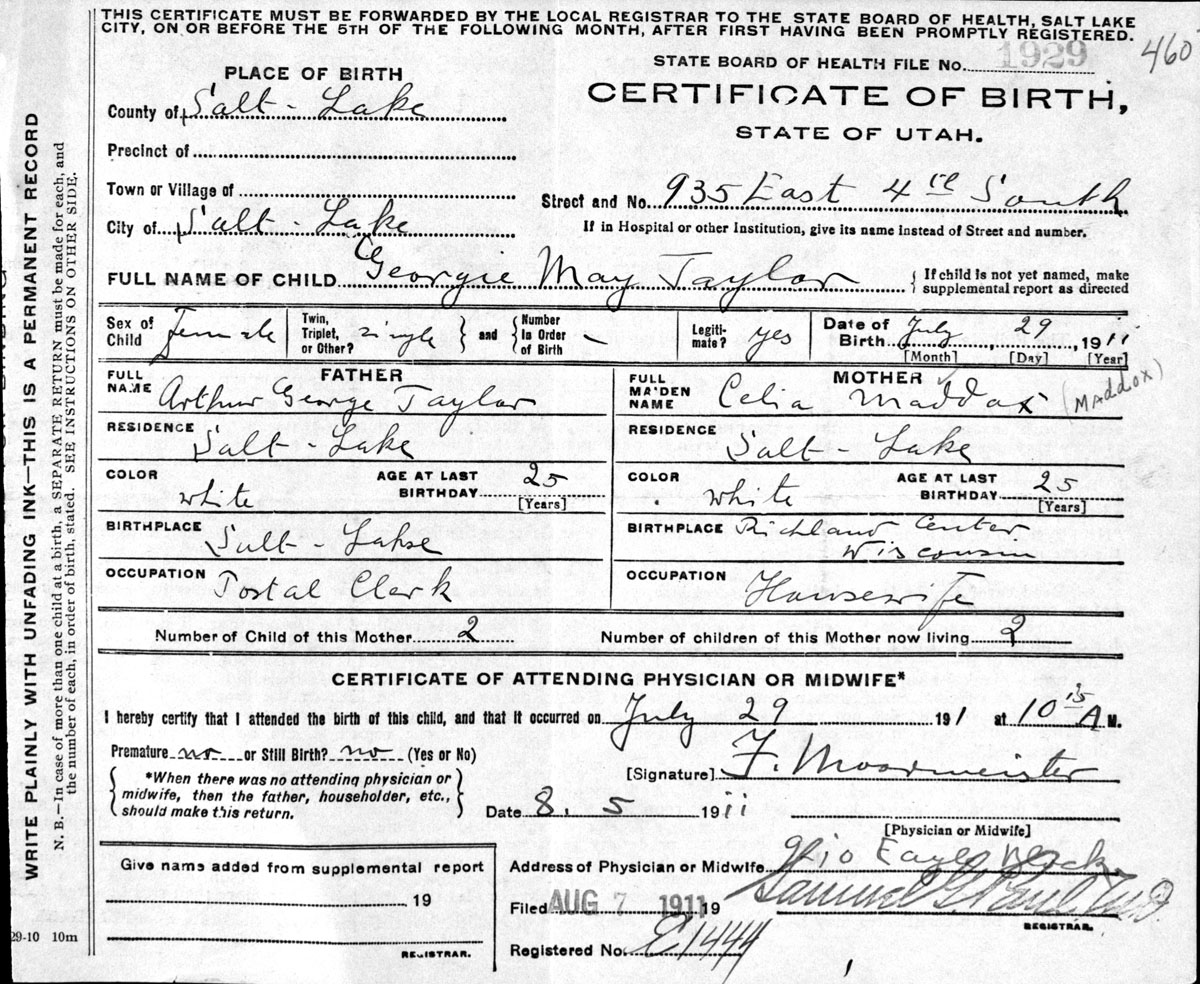 THIS CERTIFICATE MUST BE FORWARDED BY THE LOCAL REGISTRAR TO THE STATE BOARD OF HEALTH, SALT LAKE
CITY, ON OR BEFORE THE 5TH OF THE FOLLOWING MONTH, AFTER FIRST HAVING BEEN PROMPTLY REGISTERED.
460
STATE BOARD OF HEALTH FILE No. 1929
PLACE OF BIRTH
CERTIFICATE OF BIRTH,
STATE OF UTAH.
County of Salt-Lake
Precinct of
Town or Village of
Street and No. 935 East 4th South
City of Salt-Lake
If in Hospital or other Institution, give its name instead of Street and number.
FULL NAME OF CHILD Georgie May Taylor
{ If child is not yet named, make
supplemental report as directed
Sex of Child Female
Twin, Triplet, or Other? single
and
Number In Order of Birth –
Legiti-mate? yes
Date of Birth July 29 1911
[Month] [Day] [Year]
FATHER
FULL NAME Arthur George Taylor
RESIDENCE Salt-Lake
COLOR white
AGE AT LAST BIRTHDAY 25
[Years]
BIRTHPLACE Salt-Lake
OCCUPATION Postal Clerk
MOTHER
FULL MAIDEN NAME Celia Maddox (MAddox)
RESIDENCE Salt-Lake
COLOR white
AGE AT LAST BIRTHDAY 25
[Years]
BIRTHPLACE Richland Center
Wisconsin
OCCUPATION Housewife
Number of Child of this Mother 2
Number of children of this Mother now living 2
CERTIFICATE OF ATTENDING PHYSICIAN OR MIDWIFE*
I hereby certify that I attended the birth of this child, and that it occurred on July 29 191 at 10 15 A M.
Premature no or Still Birth? no (Yes or No)
[Signature] F. Moormeister
*When there was no attending physician or
midwife, then the father, householder, etc.,
should make this return.
Date 8. 5 1911
[Physician or Midwife]
Give name added from supplemental report
19
REGISTRAR.
Address of Physician or Midwife
Filed AUG 7 1911 19
Samuel G. Paul M.D.
REGISTRAR.
Registered No. E1444
WRITE PLAINLY WITH UNFADING INK—THIS IS A PERMANENT RECORD
N. B.—In case of more than one child at a birth, a SEPARATE RETURN must be made for each, and
the number of each, in order of birth, stated. SEE INSTRUCTIONS ON OTHER SIDE.
29-10 10m